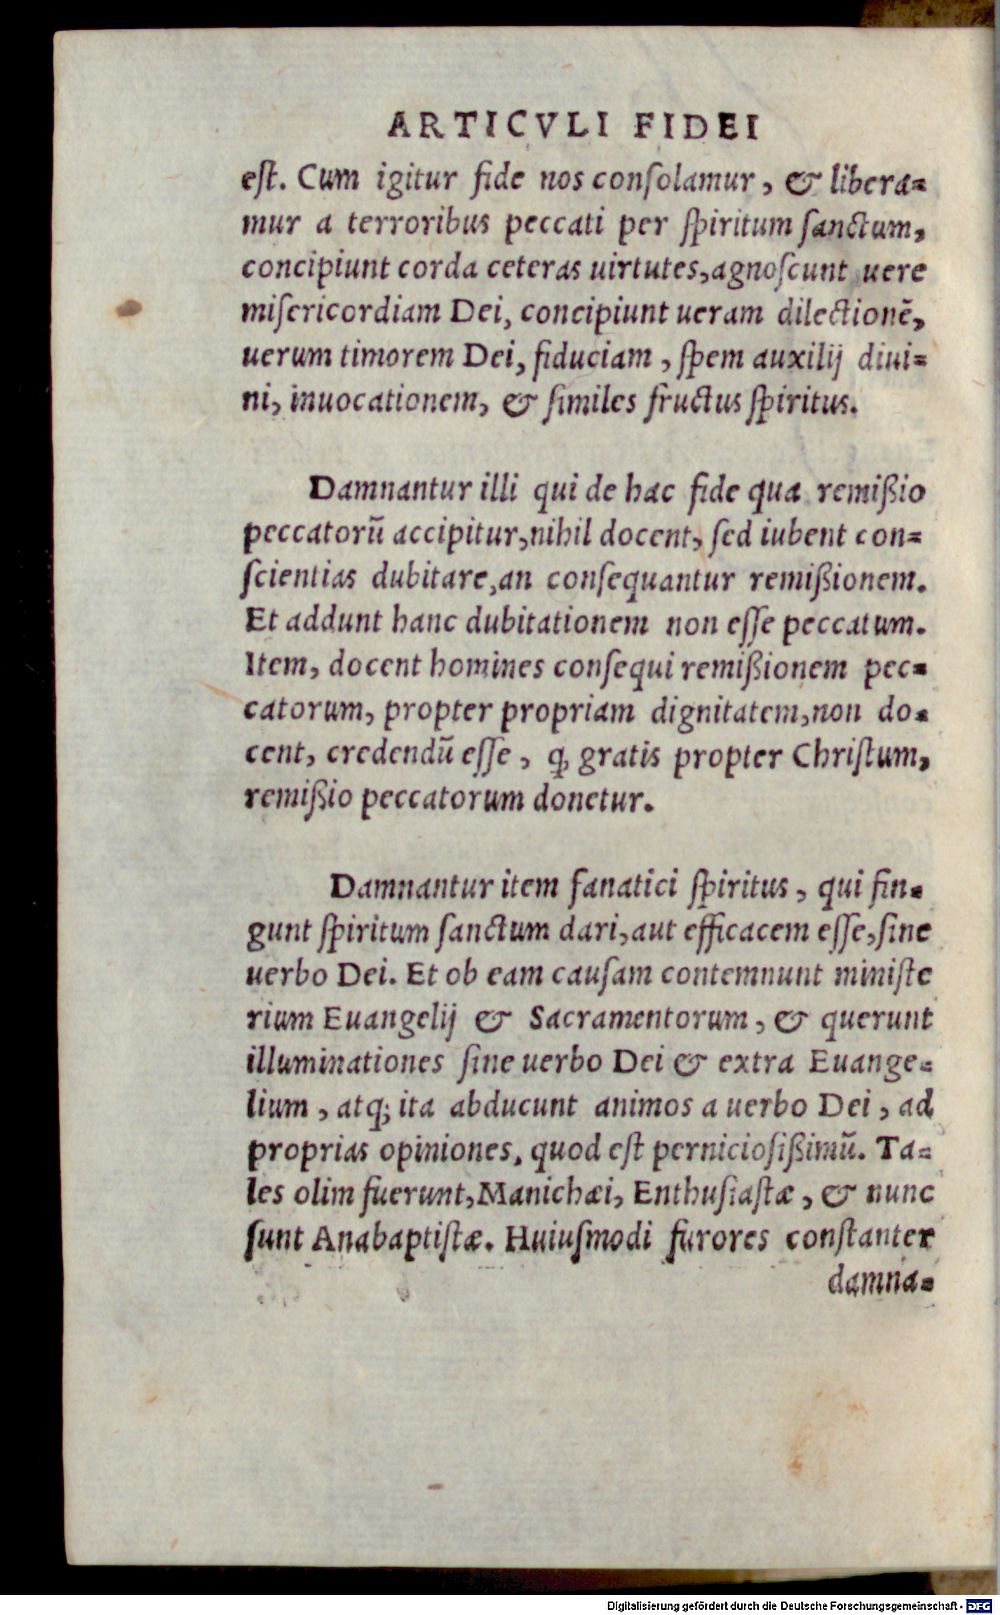 ARTICVLI FIDEI
eſt. Cum igitur fide nos conſolamur, & libera=
mur a terroribus peccati per ſpiritum ſanctum,
concipiunt corda ceteras uirtutes, agnoſcunt uere
miſericordiam Dei, concipiunt ueram dilectionẽ,
uerum timorem Dei, fiduciam, ſpem auxilij diui=
ni, inuocationem, & ſimiles fructus ſpiritus.
Damnantur illi qui de hac fide qua remißio
peccatorũ accipitur, nihil docent, ſed iubent con=
ſcientias dubitare, an conſequantur remißionem.
Et addunt hanc dubitationem non eſſe peccatum.
Item, docent homines conſequi remißionem pec=
catorum, propter propriam dignitatem, non do=
cent, credendũ eſſe, ꝙ gratis propter Chriſtum,
remißio peccatorum donetur.
Damnantur item fanatici ſpiritus, qui fin=
gunt ſpiritum ſanctum dari, aut efficacem eſſe, ſine
uerbo Dei. Et ob eam cauſam contemnunt miniſte
rium Euangelij & Sacramentorum, & querunt
illuminationes ſine uerbo Dei & extra Euange=
lium, atq; ita abducunt animos a uerbo Dei, ad
proprias opiniones, quod eſt pernicioſißimũ. Ta=
les olim fuerunt, Manichæi, Enthuſiaſtæ, & nunc
ſunt Anabaptiſtæ. Huiuſmodi furores conſtanter
damna=
Digitalisierung gefördert durch die Deutsche Forschungsgemeinschaft - DFG